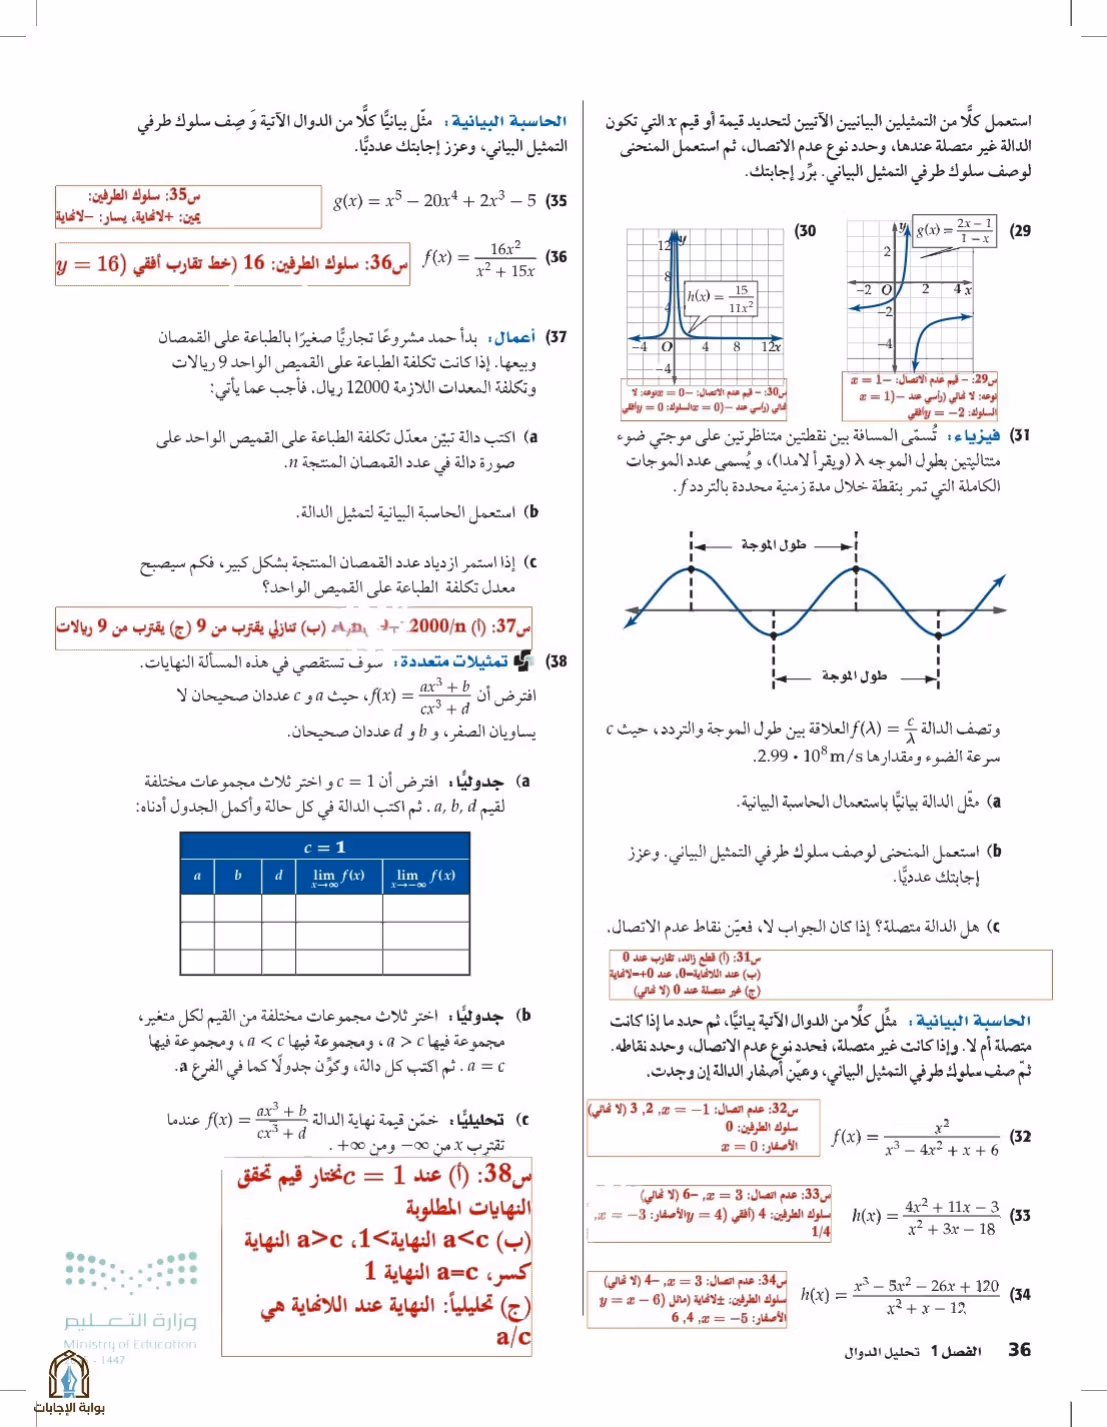 استعمل كلًّا من التمثيلين البيانيين الآتيين لتحديد قيمة أو قيم x التي تكون
الدالة غير متصلة عندها، وحدد نوع عدم الاتصال، ثم استعمل المنحنى
لوصف سلوك طرفي التمثيل البياني. برِّر إجابتك.
(29
g(x) = (2x − 1)/(1 − x)
y
2
−2 O 2 4 x
−2
−4
(30
12 y
8
4
h(x) = 15/(11x²)
−4 O 4 8 12x
−4
س29: – قيم عدم الاتصال: –x = 1
نوعه: لا نهائي (رأسي عند –(x = 1
السلوك: y = −2أفقي
س30: – قيم عدم الاتصال: –x = 0نوعه: لا
نهائي (رأسي عند –(x = 0السلوك: y = 0أفقي
(31 فيزياء: تُسمّى المسافة بين نقطتين متناظرتين على موجتي ضوء
متتاليتين بطول الموجه λ (ويقرأ لامدا)، ويُسمى عدد الموجات
الكاملة التي تمر بنقطة خلال مدة زمنية محددة بالتردد f.
طول الموجة
طول الموجة
وتصف الدالة f(λ) = c/λ العلاقة بين طول الموجة والتردد، حيث c
سرعة الضوء ومقدارها 2.99 · 10⁸ m/s.
(a مثّل الدالة بيانيًّا باستعمال الحاسبة البيانية.
(b استعمل المنحنى لوصف سلوك طرفي التمثيل البياني. وعزز
إجابتك عدديًّا.
(c هل الدالة متصلة؟ إذا كان الجواب لا، فعيّن نقاط عدم الاتصال.
س31: (أ) قطع زائد، تقارب عند 0
(ب) عند اللانهاية=0، عند 0+=لانهاية
(ج) غير متصلة عند 0 (لا نهائي)
الحاسبة البيانية: مثِّل كلًّا من الدوال الآتية بيانيًّا، ثم حدد ما إذا كانت
متصلة أم لا. وإذا كانت غير متصلة، فحدد نوع عدم الاتصال، وحدد نقاطه.
ثمّ صف سلوك طرفي التمثيل البياني، وعيّن أصفار الدالة إن وجدت.
(32 f(x) = x²/(x³ − 4x² + x + 6)
س32: عدم اتصال: x = −1, 2, 3 (لا نهائي)
سلوك الطرفين: 0
الأصفار: x = 0
(33 h(x) = (4x² + 11x − 3)/(x² + 3x − 18)
س33: عدم اتصال: x = 3, −6 (لا نهائي)
سلوك الطرفين: 4 (أفقي (y = 4الأصفار: x = −3,
1/4
(34 h(x) = (x³ − 5x² − 26x + 120)/(x² + x − 12)
س34: عدم اتصال: x = 3, −4 (لا نهائي)
سلوك الطرفين: ±لانهاية (مائل (y = x − 6
الأصفار: x = −5, 4, 6
36 الفصل 1 تحليل الدوال
الحاسبة البيانية: مثّل بيانيًّا كلًّا من الدوال الآتية وَصِف سلوك طرفي
التمثيل البياني، وعزز إجابتك عدديًّا.
(35 g(x) = x⁵ − 20x⁴ + 2x³ − 5
س35: سلوك الطرفين:
يمين: +لانهاية، يسار: –لانهاية
(36 f(x) = 16x²/(x² + 15x)
س36: سلوك الطرفين: 16 (خط تقارب أفقي (y = 16
(37 أعمال: بدأ حمد مشروعًا تجاريًّا صغيرًا بالطباعة على القمصان
وبيعها. إذا كانت تكلفة الطباعة على القميص الواحد 9 ريالات
وتكلفة المعدات اللازمة 12000 ريال. فأجب عما يأتي:
(a اكتب دالة تبيّن معدّل تكلفة الطباعة على القميص الواحد على
صورة دالة في عدد القمصان المنتجة n.
(b استعمل الحاسبة البيانية لتمثيل الدالة.
(c إذا استمر ازدياد عدد القمصان المنتجة بشكل كبير، فكم سيصبح
معدل تكلفة الطباعة على القميص الواحد؟
س37: (أ) 2000/n (ب) تنازلي يقترب من 9 (ج) يقترب من 9 ريالات
(38 تمثيلات متعددة: سوف تستقصي في هذه المسألة النهايات.
افترض أن f(x) = (ax³ + b)/(cx³ + d)، حيث a و c عددان صحيحان لا
يساويان الصفر، و b و d عددان صحيحان.
(a جدوليًّا: افترض أن c = 1 و اختر ثلاث مجموعات مختلفة
لقيم a, b, d. ثم اكتب الدالة في كل حالة وأكمل الجدول أدناه:
c = 1
a b d lim x→∞ f(x) lim x→−∞ f(x)
(b جدوليًّا: اختر ثلاث مجموعات مختلفة من القيم لكل متغير،
مجموعة فيها a > c، ومجموعة فيها a < c، ومجموعة فيها
a = c. ثم اكتب كل دالة، وكوِّن جدولًا كما في الفرع a.
(c تحليليًّا: خمّن قيمة نهاية الدالة f(x) = (ax³ + b)/(cx³ + d) عندما
تقترب x من ∞− ومن ∞+.
س38: (أ) عند c = 1نختار قيم تحقق
النهايات المطلوبة
(ب) a<c النهاية<1، a>c النهاية
كسر، a=c النهاية 1
(ج) تحليلياً: النهاية عند اللانهاية هي
a/c
وزارة التعليم
Ministry of Education
- 1447
بوابة الإجابات